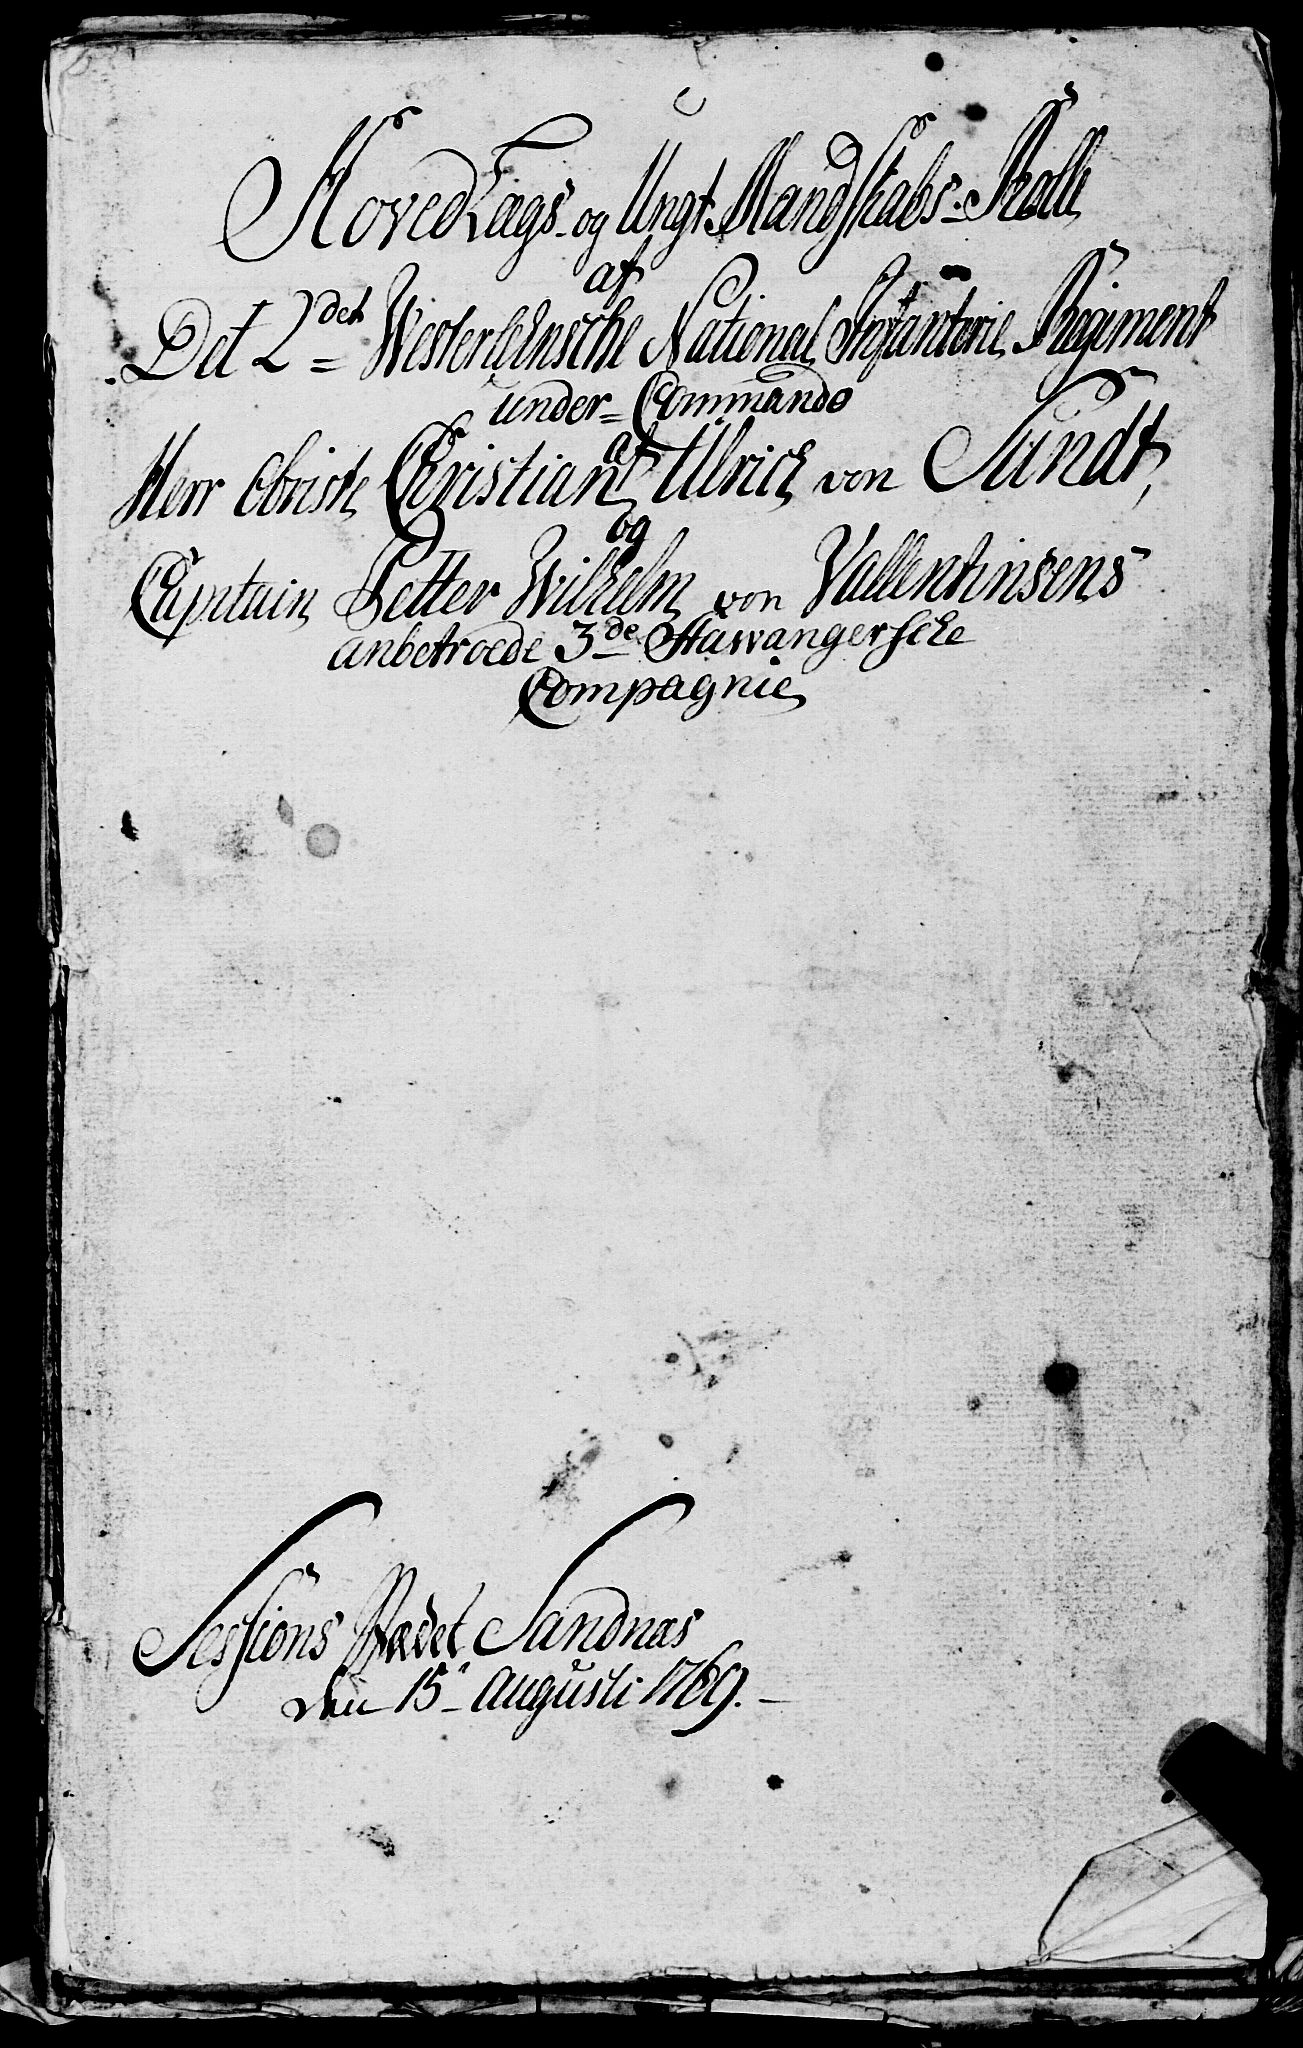 Hoved Lægs- og Ungt Mandskabs-Rolle
af
Det 2det Westerlehnsche National Infanterie Regiment
under Commando
af
Herr Obriste Christian Ulrich von Sundt,
og
Capitain Petter Wilhelm von Vallentinsens
anbetroede 3de Stawangersche
Compagnie
Sessions Stædet Sandnæs
den 15 Augusti 1769.